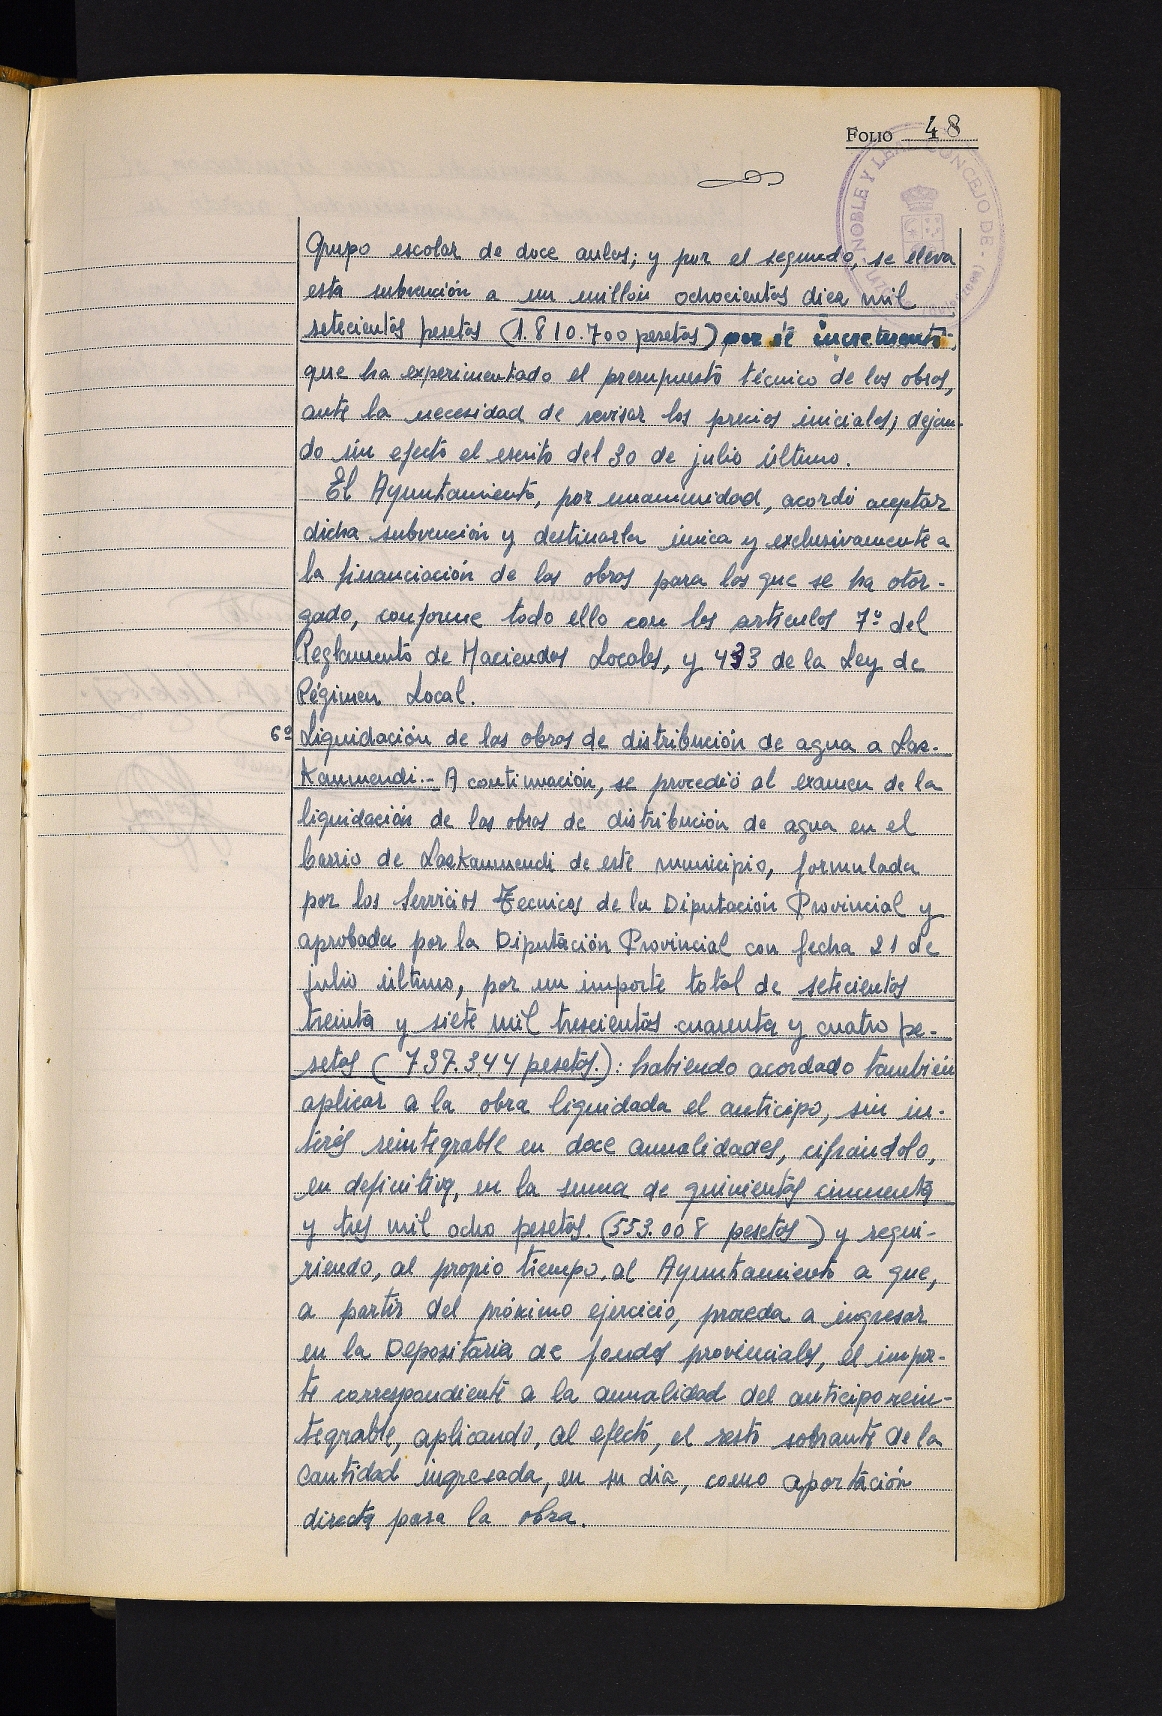 FOLIO 48
NOBLE Y LEAL CONCEJO DE
Grupo escolar de doce aulas; y por el segundo, se eleva
esta subvención a un millón ochocientos diez mil
setecientas pesetas (1.810.700 pesetas) por el incremento
que ha experimentado el presupuesto técnico de las obras,
ante la necesidad de revisar los precios iniciales; dejan-
do sin efecto el escrito del 30 de julio último.
El Ayuntamiento, por unanimidad, acordó aceptar
dicha subvención y destinarla única y exclusivamente a
la financiación de las obras para las que se ha otor-
gado, conforme todo ello con los artículos 7º del
Reglamento de Haciendas Locales, y 433 de la Ley de
Régimen Local.
6º Liquidación de las obras de distribución de agua a Las-
Kanmendi.- A continuación, se procedió al examen de la
liquidación de las obras de distribución de agua en el
barrio de Laskanmendi de este municipio, formulada
por los Servicios Técnicos de la Diputación Provincial y
aprobada por la Diputación Provincial con fecha 21 de
julio último, por un importe total de setecientas
treinta y siete mil trescientas cuarenta y cuatro pe-
setas (737.344 pesetas.): habiendo acordado también
aplicar a la obra liquidada el anticipo, sin in-
terés reintegrable en doce anualidades, cifrándolo,
en definitiva, en la suma de quinientas cincuenta
y tres mil ocho pesetas. (553.008 pesetas) y requi-
riendo, al propio tiempo, al Ayuntamiento a que,
a partir del próximo ejercicio, proceda a ingresar
en la Depositaria de fondos provinciales, el impor-
te correspondiente a la anualidad del anticipo rein-
tegrable, aplicando, al efecto, el resto sobrante de la
cantidad ingresada, en su dia, como aportación
directa para la obra.